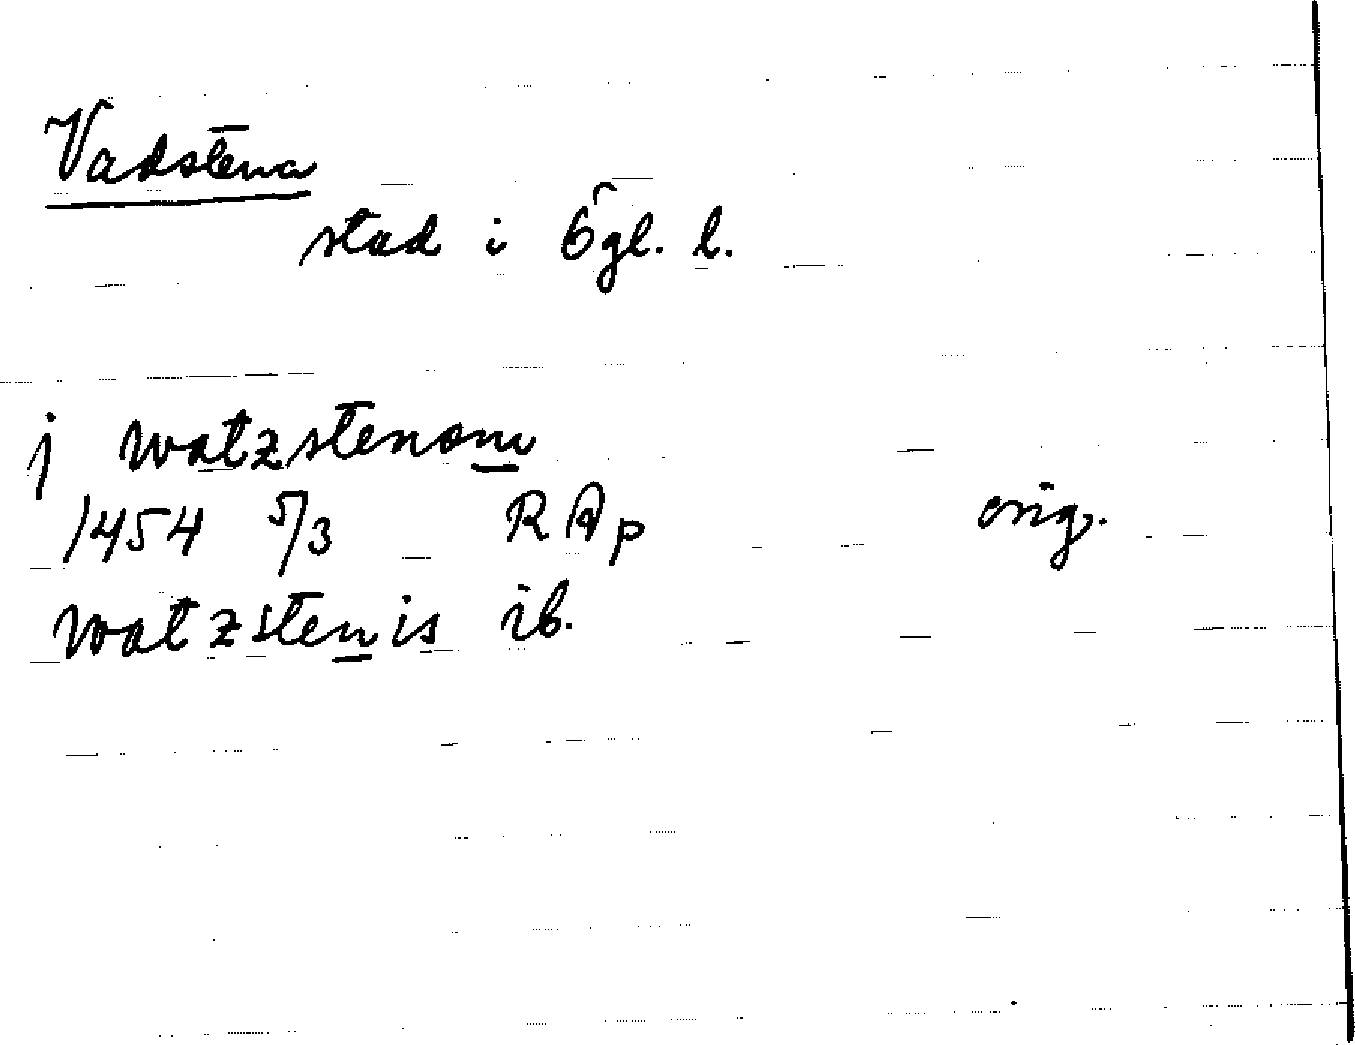 Vadstena
stad i Ögl. l.
j watzstenom
1454 5/3 RAp orig.
watzstenis ib.